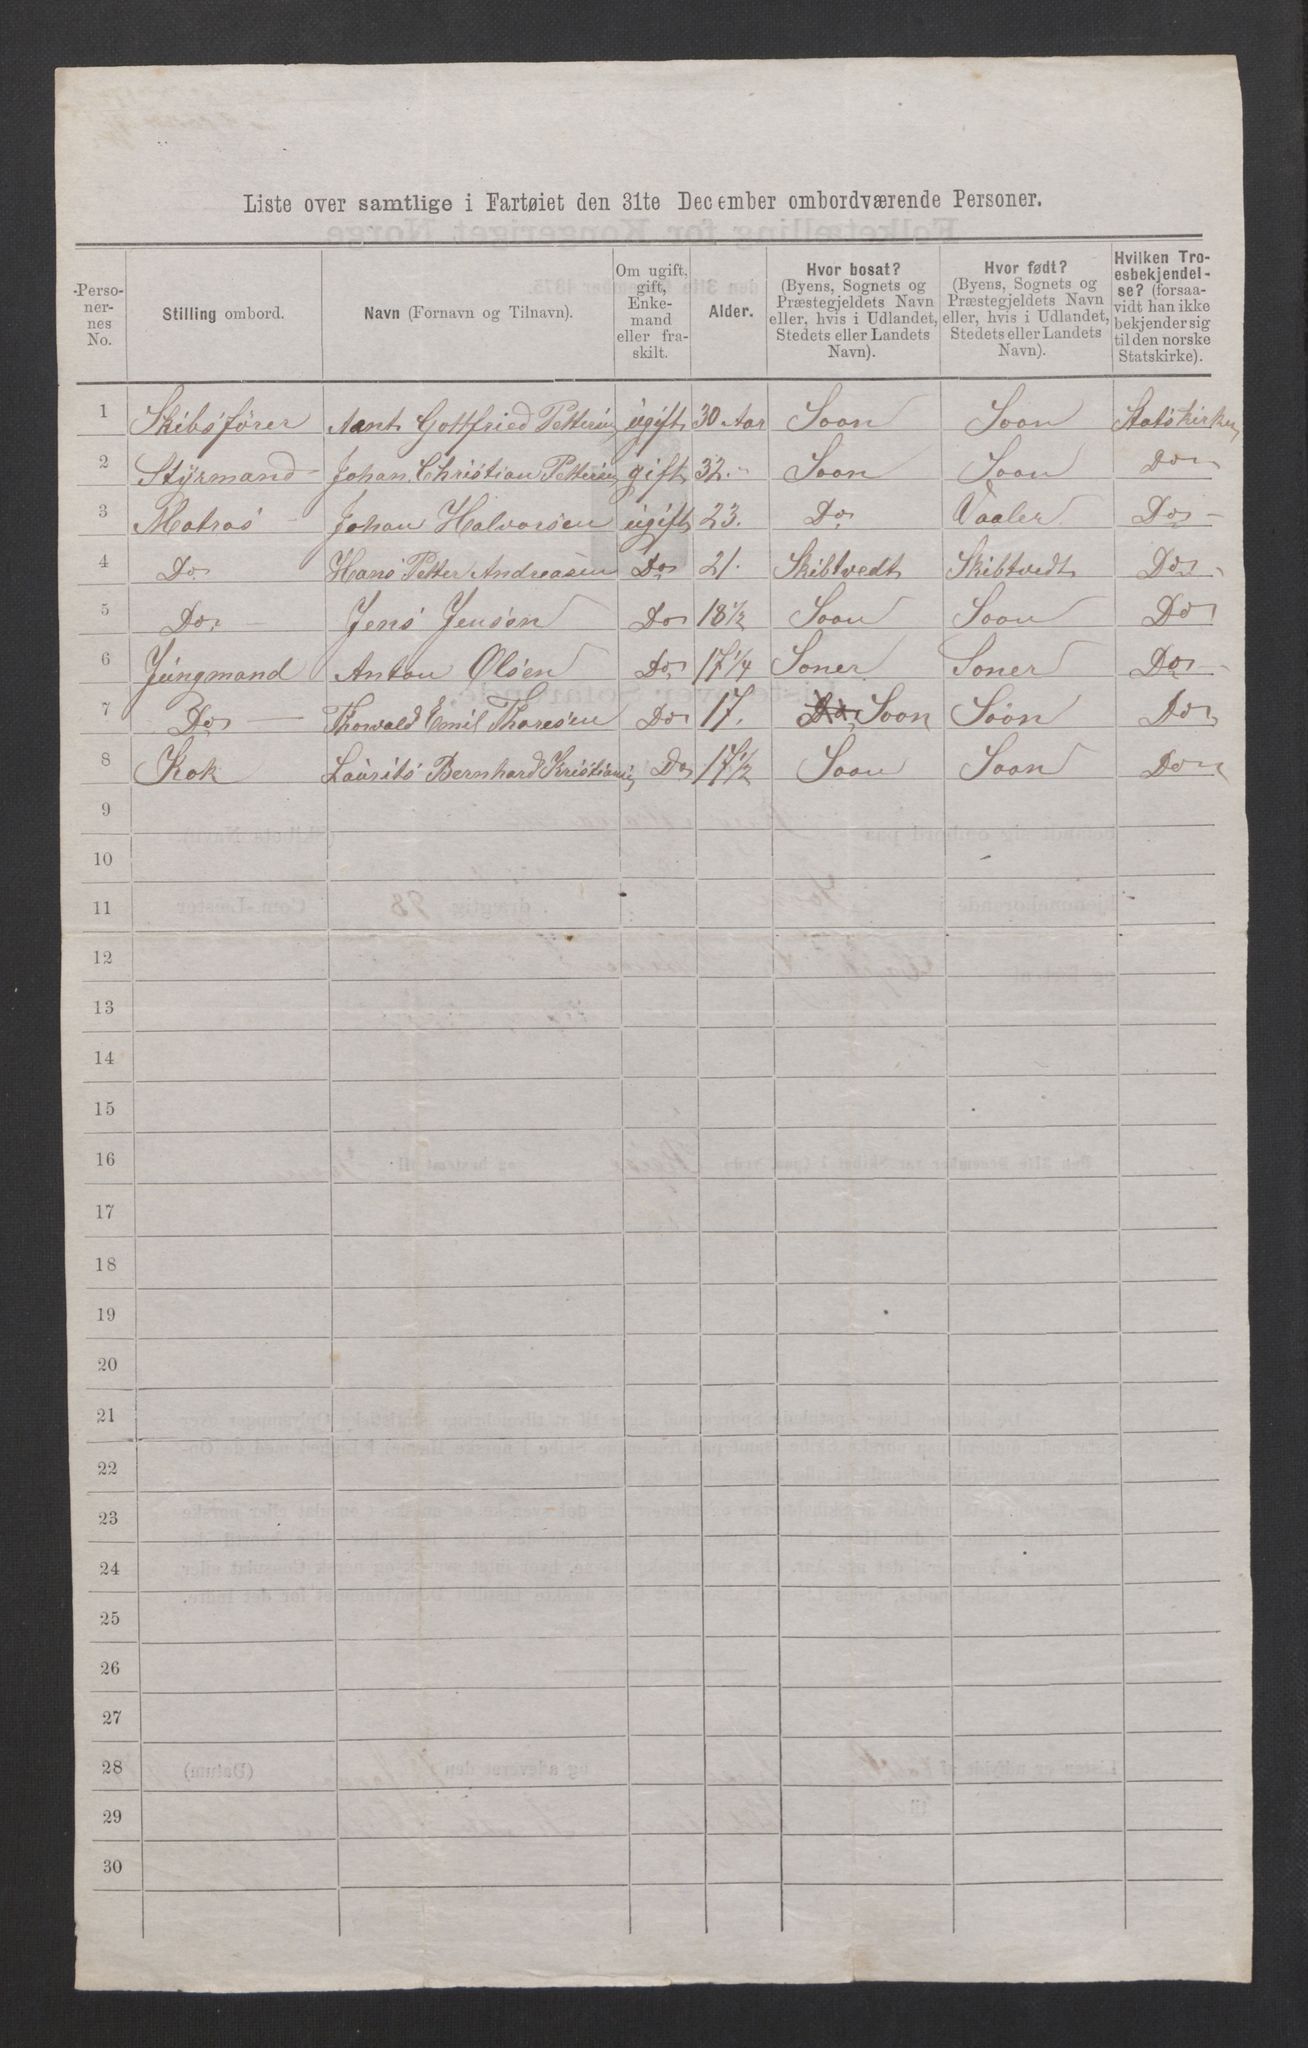 Liste over samtlige i Fartøiet den 31te December ombordværende Personer.
Perso-ner-nes No. | Stilling ombord. | Navn (Fornavn og Tilnavn). | Om ugift, gift, Enke-mand eller fra-skilt. | Alder. | Hvor bosat? (Byens, Sognets og Præstegjeldets Navn eller, hvis i Udlandet, Stedets eller Landets Navn). | Hvor født? (Byens, Sognets og Præstegjeldets Navn eller, hvis i Udlandet, Stedets eller Landets Navn). | Hvilken Tro-esbekjendel-se? (forsaa-vidt han ikke bekjender sig til den norske Statskirke).
1 Skibsfører Aant Gottfried Pettersen ugift 30 Aar Soon Soon Statskirken
2 Styrmand Johan Christian Pettersen gift 32. Soon Soon Do
3 Matros Johan Halvorsen ugift 23. Do Vaaler Do
4 Do Hans Petter Andreasen Do 21. Skibtvedt Skibtvedt Do
5 Do Jens Jensen Do 18½ Soon Soon Do
6 Jungmand Anton Olsen Do 17¼ Soner Soner Do
7 Do Thorvald Emil Thoresen Do 17. Do Soon Soon Do
8 Kok Laurits Bernhard Kristiansen Do 17½ Soon Soon Do
9
10
11
12
13
14
15
16
17
18
19
20
21
22
23
24
25
26
27
28
29
30